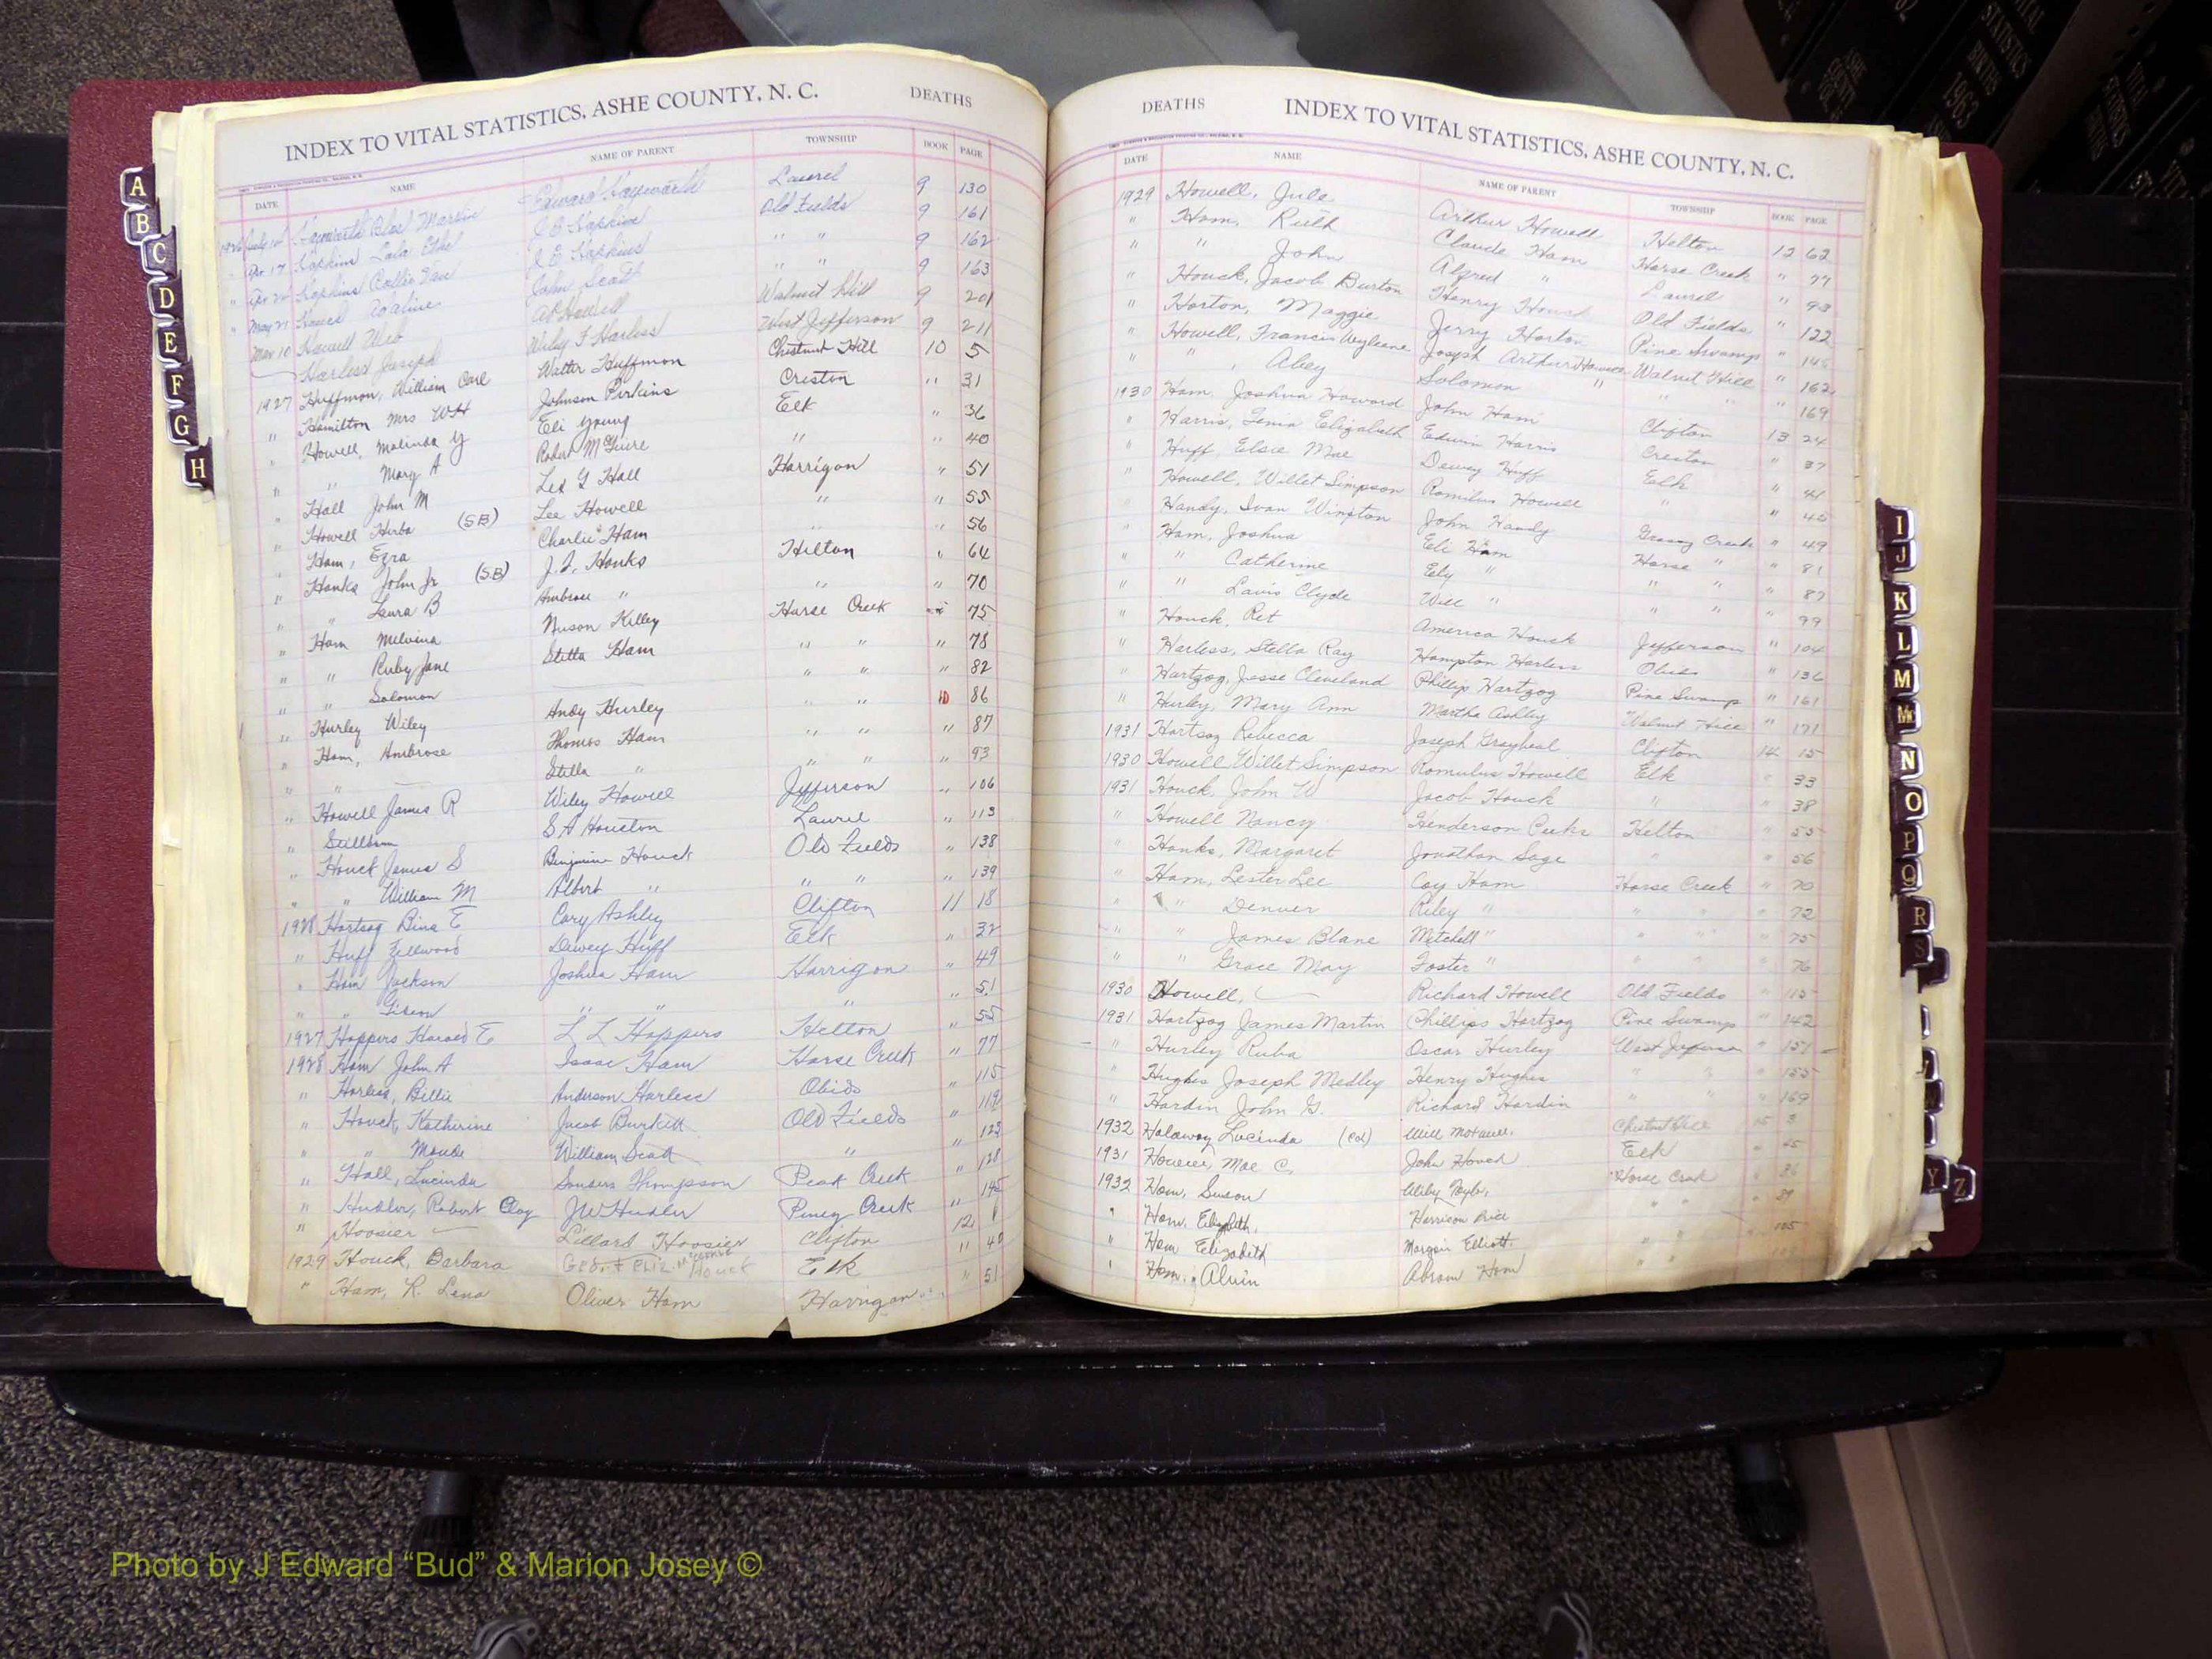 INDEX TO VITAL STATISTICS, ASHE COUNTY, N. C. DEATHS
DATE NAME NAME OF PARENT TOWNSHIP BOOK PAGE
Edward Laurel 9 130
Apr 17 Hopkins Lula Ethel J E Hopkins Old Fields 9 161
" Hopkins J E Hopkins " " 9 162
" May 21 John Scott 9 163
Mar 10 Howell A P Howell Walnut Hill 9 201
Harless Joseph Wiley F Harless West Jefferson 9 211
1927 Huffmon, William Carl Walter Huffmon Chestnut Hill 10 5
" Hamilton Mrs W H Johnson Perkins Creston " 31
" Howell, Malinda Y Eli Young Elk " 36
" " Mary A Robert McGuire " " 40
" Hall John M Lee G Hall Harrigon " 51
" Howell Herba (SB) Lee Howell " " 55
" Ham, Ezra Charlie Ham " " 56
" Hanks John Jr (SB) J. I. Hanks Hilton " 64
" " Laura B Ambrose " " " 70
" Ham Melvina Nuson Killey Horse Creek " 75
" " Ruby Jane Stella Ham " " " 78
" " Solomon " " " 82
" Hurley Wiley Andy Hurley " " 10 86
" Ham, Ambrose Thomas Ham " " " 87
" " Stella " " " " 93
" Howell James R Wiley Howell Jefferson " 106
" Stillborn S A Houston Laurel " 113
" Houck James S Benjimin Houck Old Fields " 138
" " William M Albert " " " " 139
1928 Hartsog Bina E Cary Ashley Clifton 11 18
" Huff Fellwood Dewey Huff Elk " 32
" Ham Jackson Joshua Ham Harrigon " 49
" " Gideon " " " " 51
1927 Hoppers Harold E L L Hoppers Helton " 55
1928 Ham John A Isaac Ham Horse Creek " 77
" Harless, Billie Anderson Harless Obids " 115
" Houck, Katherine Jacob Burkett Old Fields " 119
" " Maude William Scott " " 123
" Hall, Lucinda Sanders Thompson Peak Creek " 128
" Hudler, Robert Clay J W Hudler Piney Creek " 145
" Hoosier Lillard Hoosier Clifton 12 1
1929 Houck, Barbara Geo. & Eliz. Houck Elk 11 40
" Ham, R. Lena Oliver Ham Harrigan " 51
DEATHS INDEX TO VITAL STATISTICS, ASHE COUNTY, N. C.
DATE NAME NAME OF PARENT TOWNSHIP BOOK PAGE
1929 Howell, Jule Arthur Howell Helton 12 62
" Ham, Ruth Claude Ham Horse Creek " 77
" " John Alfred " Laurel " 93
" Houck, Jacob Burton Henry Houck Old Fields " 122
" Horton, Maggie Jerry Horton Pine Swamp " 146
" Howell, Francis Joseph Arthur Howell Walnut Hill " 162
" " Alley Solomon " " " " 169
1930 Ham, Joshua Howard John Ham Clifton 13 24
" Harris, Elizabeth Edwin Harris Creston " 37
" Huff, Elsie Mae Dewey Huff Elk " 41
" Howell, Willet Simpson Romulus Howell " " 45
" Handy, Ivan Winston John Handy Grassy Creek " 49
" Ham, Joshua Eli Ham Horse " " 81
" " Catherine Ely " " " " 87
" " Lavis Clyde Will " " " " 99
" Houck, Ret America Houck Jefferson " 104
" Harless, Stella Ray Hampton Harless Obids " 136
" Hartzog, Jesse Cleveland Phillip Hartzog Pine Swamp " 161
" Hurley, Mary Ann Martha Ashley Walnut Hill " 171
1931 Hartsog Rebecca Joseph Graybeal Clifton 14 15
1930 Howell, Willet Simpson Romulus Howell Elk " 33
1931 Houck, John W Jacob Houck " " 38
" Howell Nancy Henderson Helton " 55
" Hanks, Margaret Jonathan Sage " " 56
" Ham, Lester Lee Coy Ham Horse Creek " 70
" " Denver Riley " " " " 72
" " James Blane Mitchell " " " " 75
" " Grace May Foster " " " " 76
1930 Howell, Richard Howell Old Fields " 115
1931 Hartzog James Martin Phillips Hartzog Pine Swamp " 142
" Hurley Ruba Oscar Hurley West Jefferson " 151
" Hughes Joseph Medley Henry Hughes " " " 155
" Hardin John G. Richard Hardin " " " 169
1932 Holaway Lucinda (Col) Will Chestnut Hill 15 3
1931 Mae C. John Elk " 25
1932 Ham, Susan Wiley Horse Creek " 36
" Ham, Elizabeth, Harrison Price " " " 89
" Ham Elizabeth Elliott " " " 105
" Ham, Alvin Abram Ham " "
A
B
C
D
E
F
G
H
I
J
K
L
M
Mc
N
O
P
Q
R
S
Y
Z
VITAL STATISTICS BIRTHS 1963
ASHE COUNTY
Photo by J Edward “Bud” & Marion Josey ©